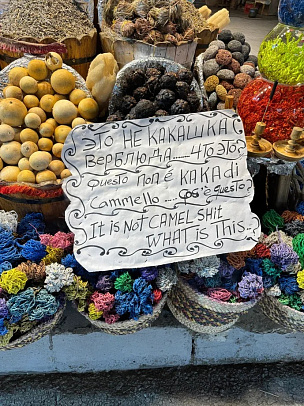 ЭТО НЕ КАКАШКА(
ВЕРБЛЮДА.....ЧТО ЭТО?
questo non é KAKA di
Cammello... Cos'è questo?
It is NOT CAMEL SHIT
WHAT is THIS..?